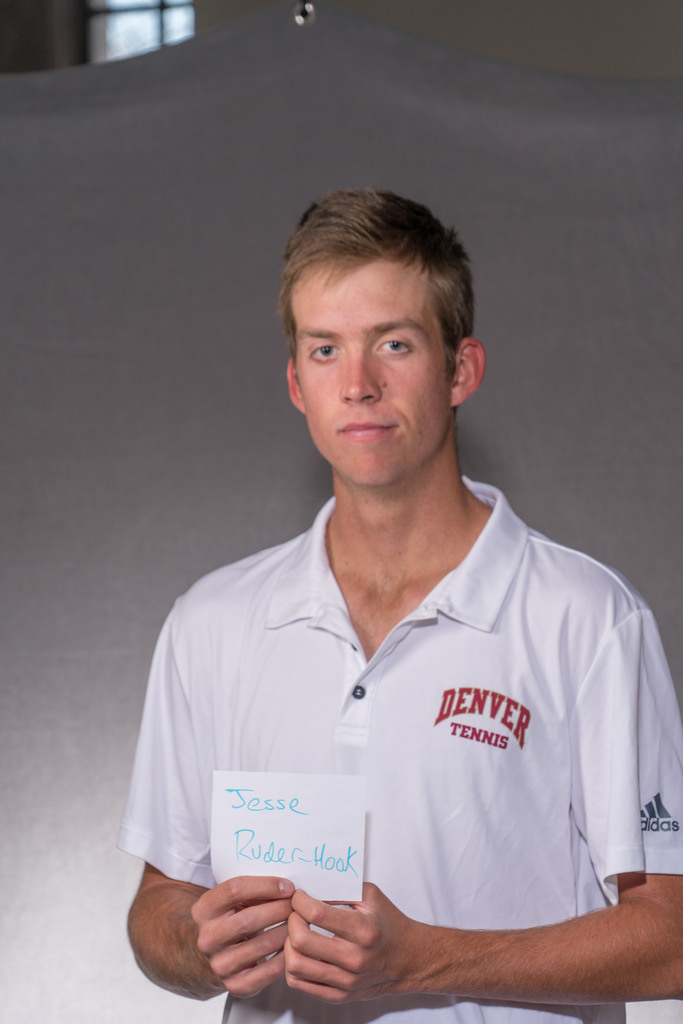 DENVER
TENNIS
adidas
Jesse
Ruder-Hook